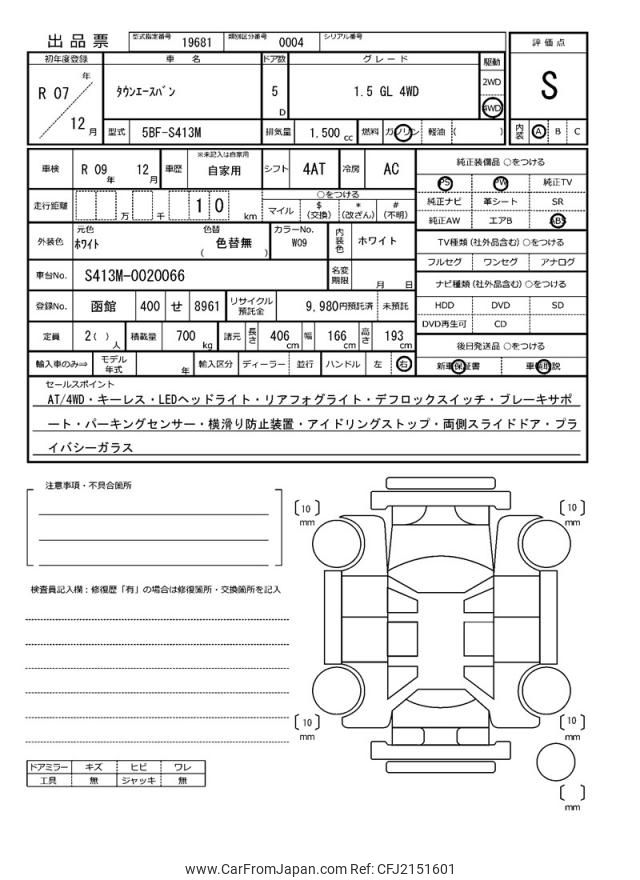 出品票 型式指定番号 19681 類別区分番号 0004 シリアル番号
評価点
S
内装 A B C
初年度登録 車名 ドア数 グレード 駆動
R 07 年 12 月 タウンエースバン 5 D 1.5 GL 4WD 2WD 4WD
型式 5BF-S413M 排気量 1.500 cc 燃料 ガソリン 軽油 ( )
車検 R 09 年 12 月 車歴 ※未記入は自家用 自家用 シフト 4AT 冷房 AC
走行距離 万 千 1 0 km ○をつける
マイル $ (交換) * (改ざん) # (不明)
外装色 元色 ホワイト 色替 色替無 ( ) カラーNo. W09 内装色 ホワイト
車台No. S413M-0020066 名変期限 月 日
登録No. 函館 400 せ 8961 リサイクル預託金 9,980円預託済 未預託
定員 2( ) 人 積載量 700 kg 諸元 長さ 406 cm 幅 166 cm 高さ 193 cm
輸入車のみ⇒ モデル年式 年 輸入区分 ディーラー 並行 ハンドル 左 右
純正装備品 ○をつける
PS PW 純正TV
純正ナビ 革シート SR
純正AW エアB ABS
TV種類 (社外品含む) ○をつける
フルセグ ワンセグ アナログ
ナビ種類 (社外品含む) ○をつける
HDD DVD SD
DVD再生可 CD
後日発送品 ○をつける
新車保証書 車輌取説
セールスポイント
AT/4WD・キーレス・LEDヘッドライト・リアフォグライト・デフロックスイッチ・ブレーキサポ
ート・パーキングセンサー・横滑り防止装置・アイドリングストップ・両側スライドドア・プラ
イバシーガラス
注意事項・不具合箇所
検査員記入欄：修復歴「有」の場合は修復箇所・交換箇所を記入
ドアミラー キズ ヒビ ワレ
工具 無 ジャッキ 無
[10] mm
[10] mm
[10] mm
[10] mm
[ ] mm
www.CarFromJapan.com Ref: CFJ2151601